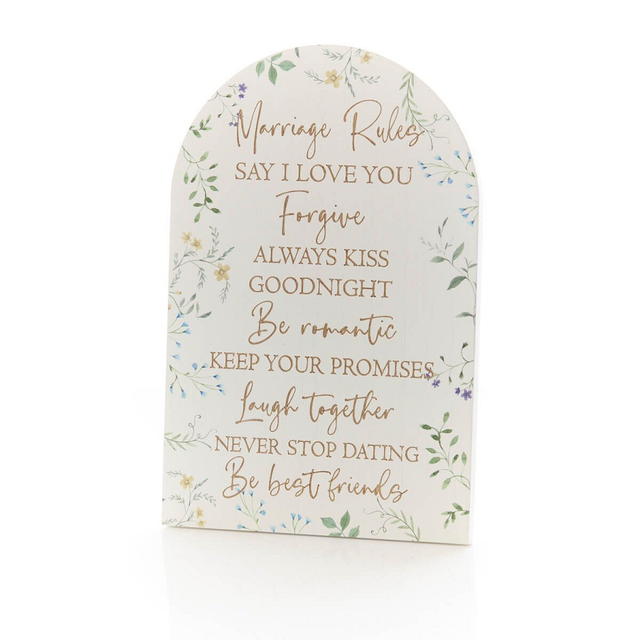 Marriage Rules
SAY I LOVE YOU
Forgive
ALWAYS KISS
GOODNIGHT
Be romantic
KEEP YOUR PROMISES
Laugh together
NEVER STOP DATING
Be best friends